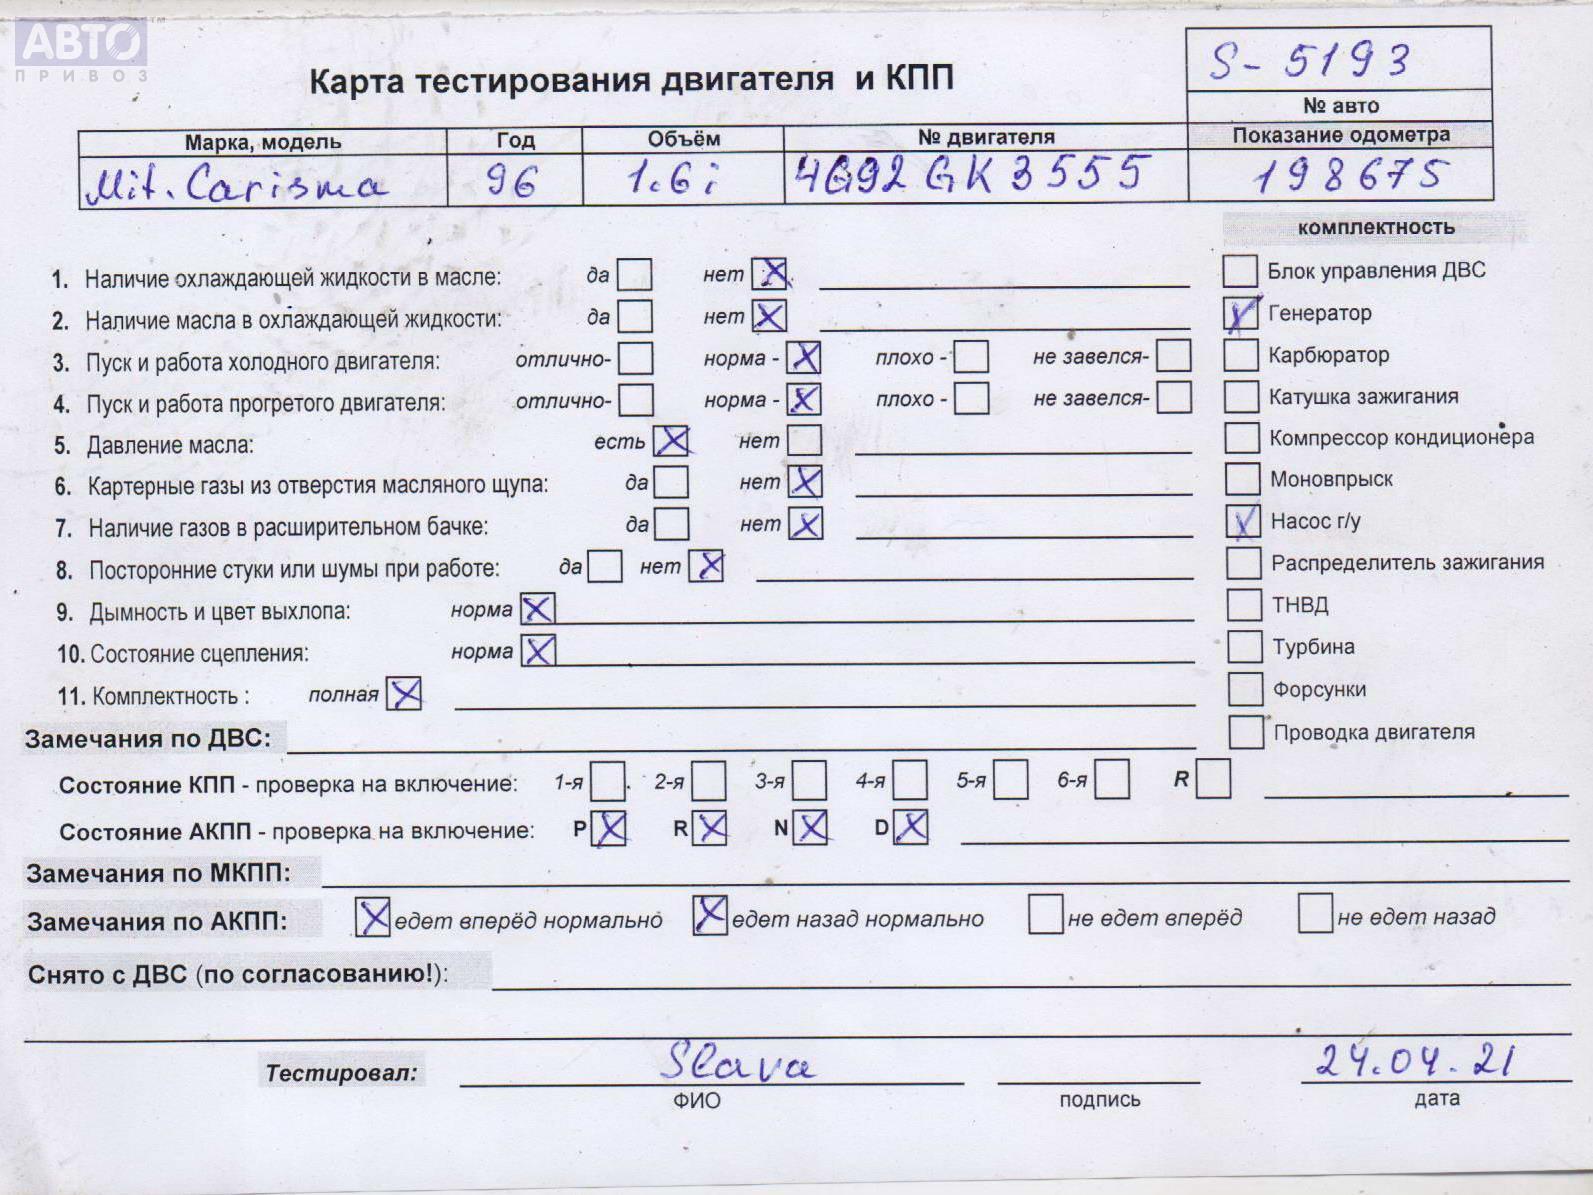 АВТО
ПРИВОЗ
S-5193
Карта тестирования двигателя и КПП
№ авто
Марка, модель Год Объём № двигателя Показание одометра
Mit. Carisma 96 1.6i 4G92GK3555 198675
комплектность
1. Наличие охлаждающей жидкости в масле: да нет X
Блок управления ДВС
2. Наличие масла в охлаждающей жидкости: да нет X
X Генератор
3. Пуск и работа холодного двигателя: отлично- норма - X плохо - не завелся-
Карбюратор
4. Пуск и работа прогретого двигателя: отлично- норма - X плохо - не завелся-
Катушка зажигания
5. Давление масла: есть X нет
Компрессор кондиционера
6. Картерные газы из отверстия масляного щупа: да нет X
Моновпрыск
7. Наличие газов в расширительном бачке: да нет X
X Насос г/у
8. Посторонние стуки или шумы при работе: да нет X
Распределитель зажигания
9. Дымность и цвет выхлопа: норма X
ТНВД
10. Состояние сцепления: норма X
Турбина
11. Комплектность : полная X
Форсунки
Замечания по ДВС:
Проводка двигателя
Состояние КПП - проверка на включение: 1-я 2-я 3-я 4-я 5-я 6-я R
Состояние АКПП - проверка на включение: P X R X N X D X
Замечания по МКПП:
Замечания по АКПП: X едет вперёд нормально X едет назад нормально не едет вперёд не едет назад
Снято с ДВС (по согласованию!):
Тестировал: Slava 24.04.21
ФИО подпись дата